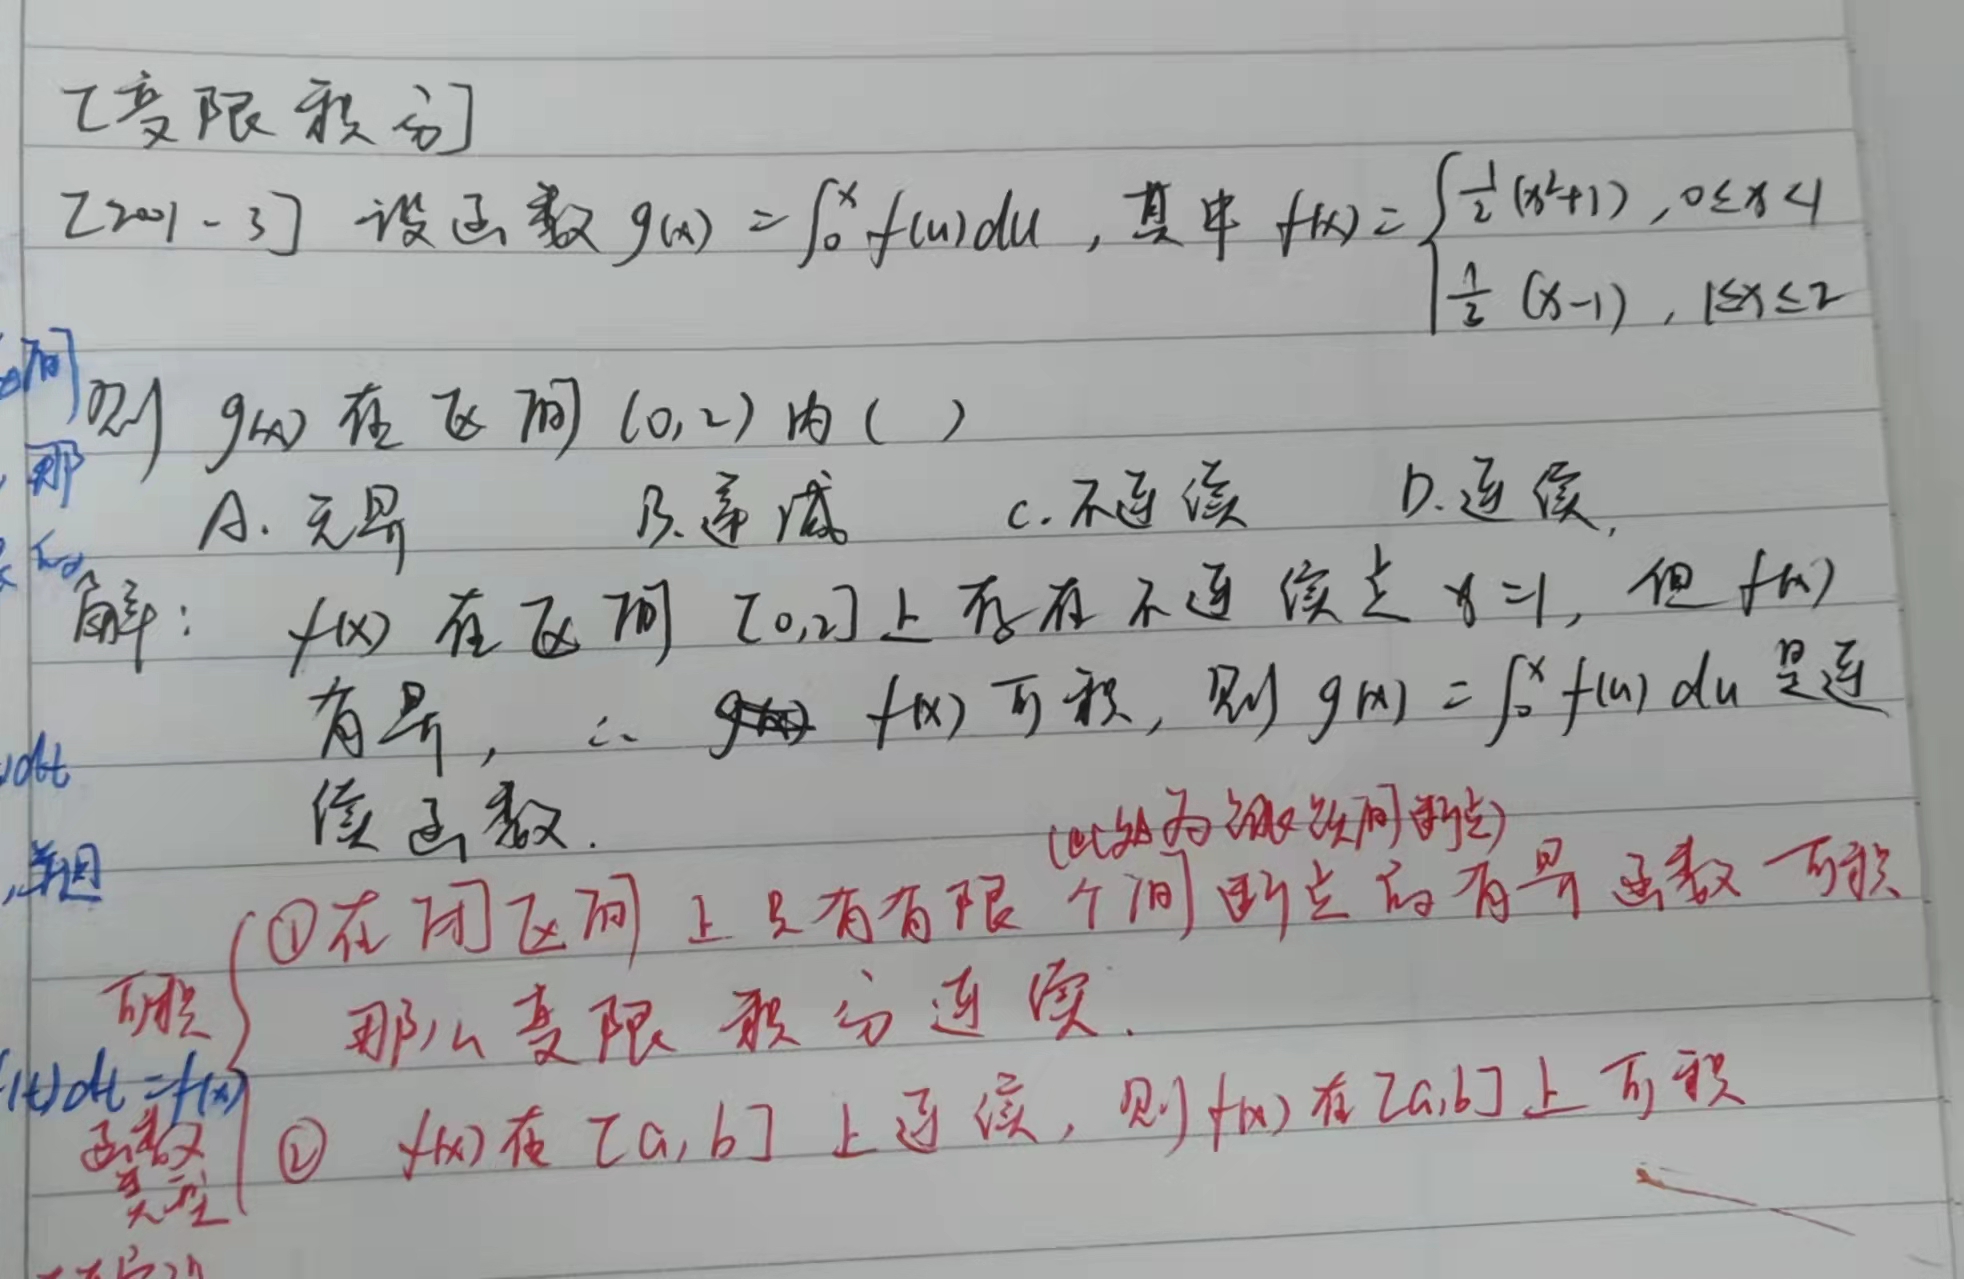 [变限积分]
[2001-3] 设函数 g(x) = ∫₀ˣ f(u)du , 其中 f(x) = { 1/2 (x²+1) , 0≤x<1
1/2 (x-1) , 1≤x≤2
则 g(x) 在区间 (0,2) 内 ( )
A. 无界 B. 递减 C. 不连续 D. 连续.
解: f(x) 在区间 [0,2] 上存在不连续点 x=1, 但 f(x)
有界, ∴ f(x) 可积, 则 g(x) = ∫₀ˣ f(u) du 是连
续函数.
间断点)
① 在闭区间上只有有限个间断点的有界函数可积
那么变限积分连续.
可积
函数
类型
② f(x) 在 [a,b] 上连续, 则 f(x) 在 [a,b] 上可积
间
那
dt
f(t)dt = f(x)